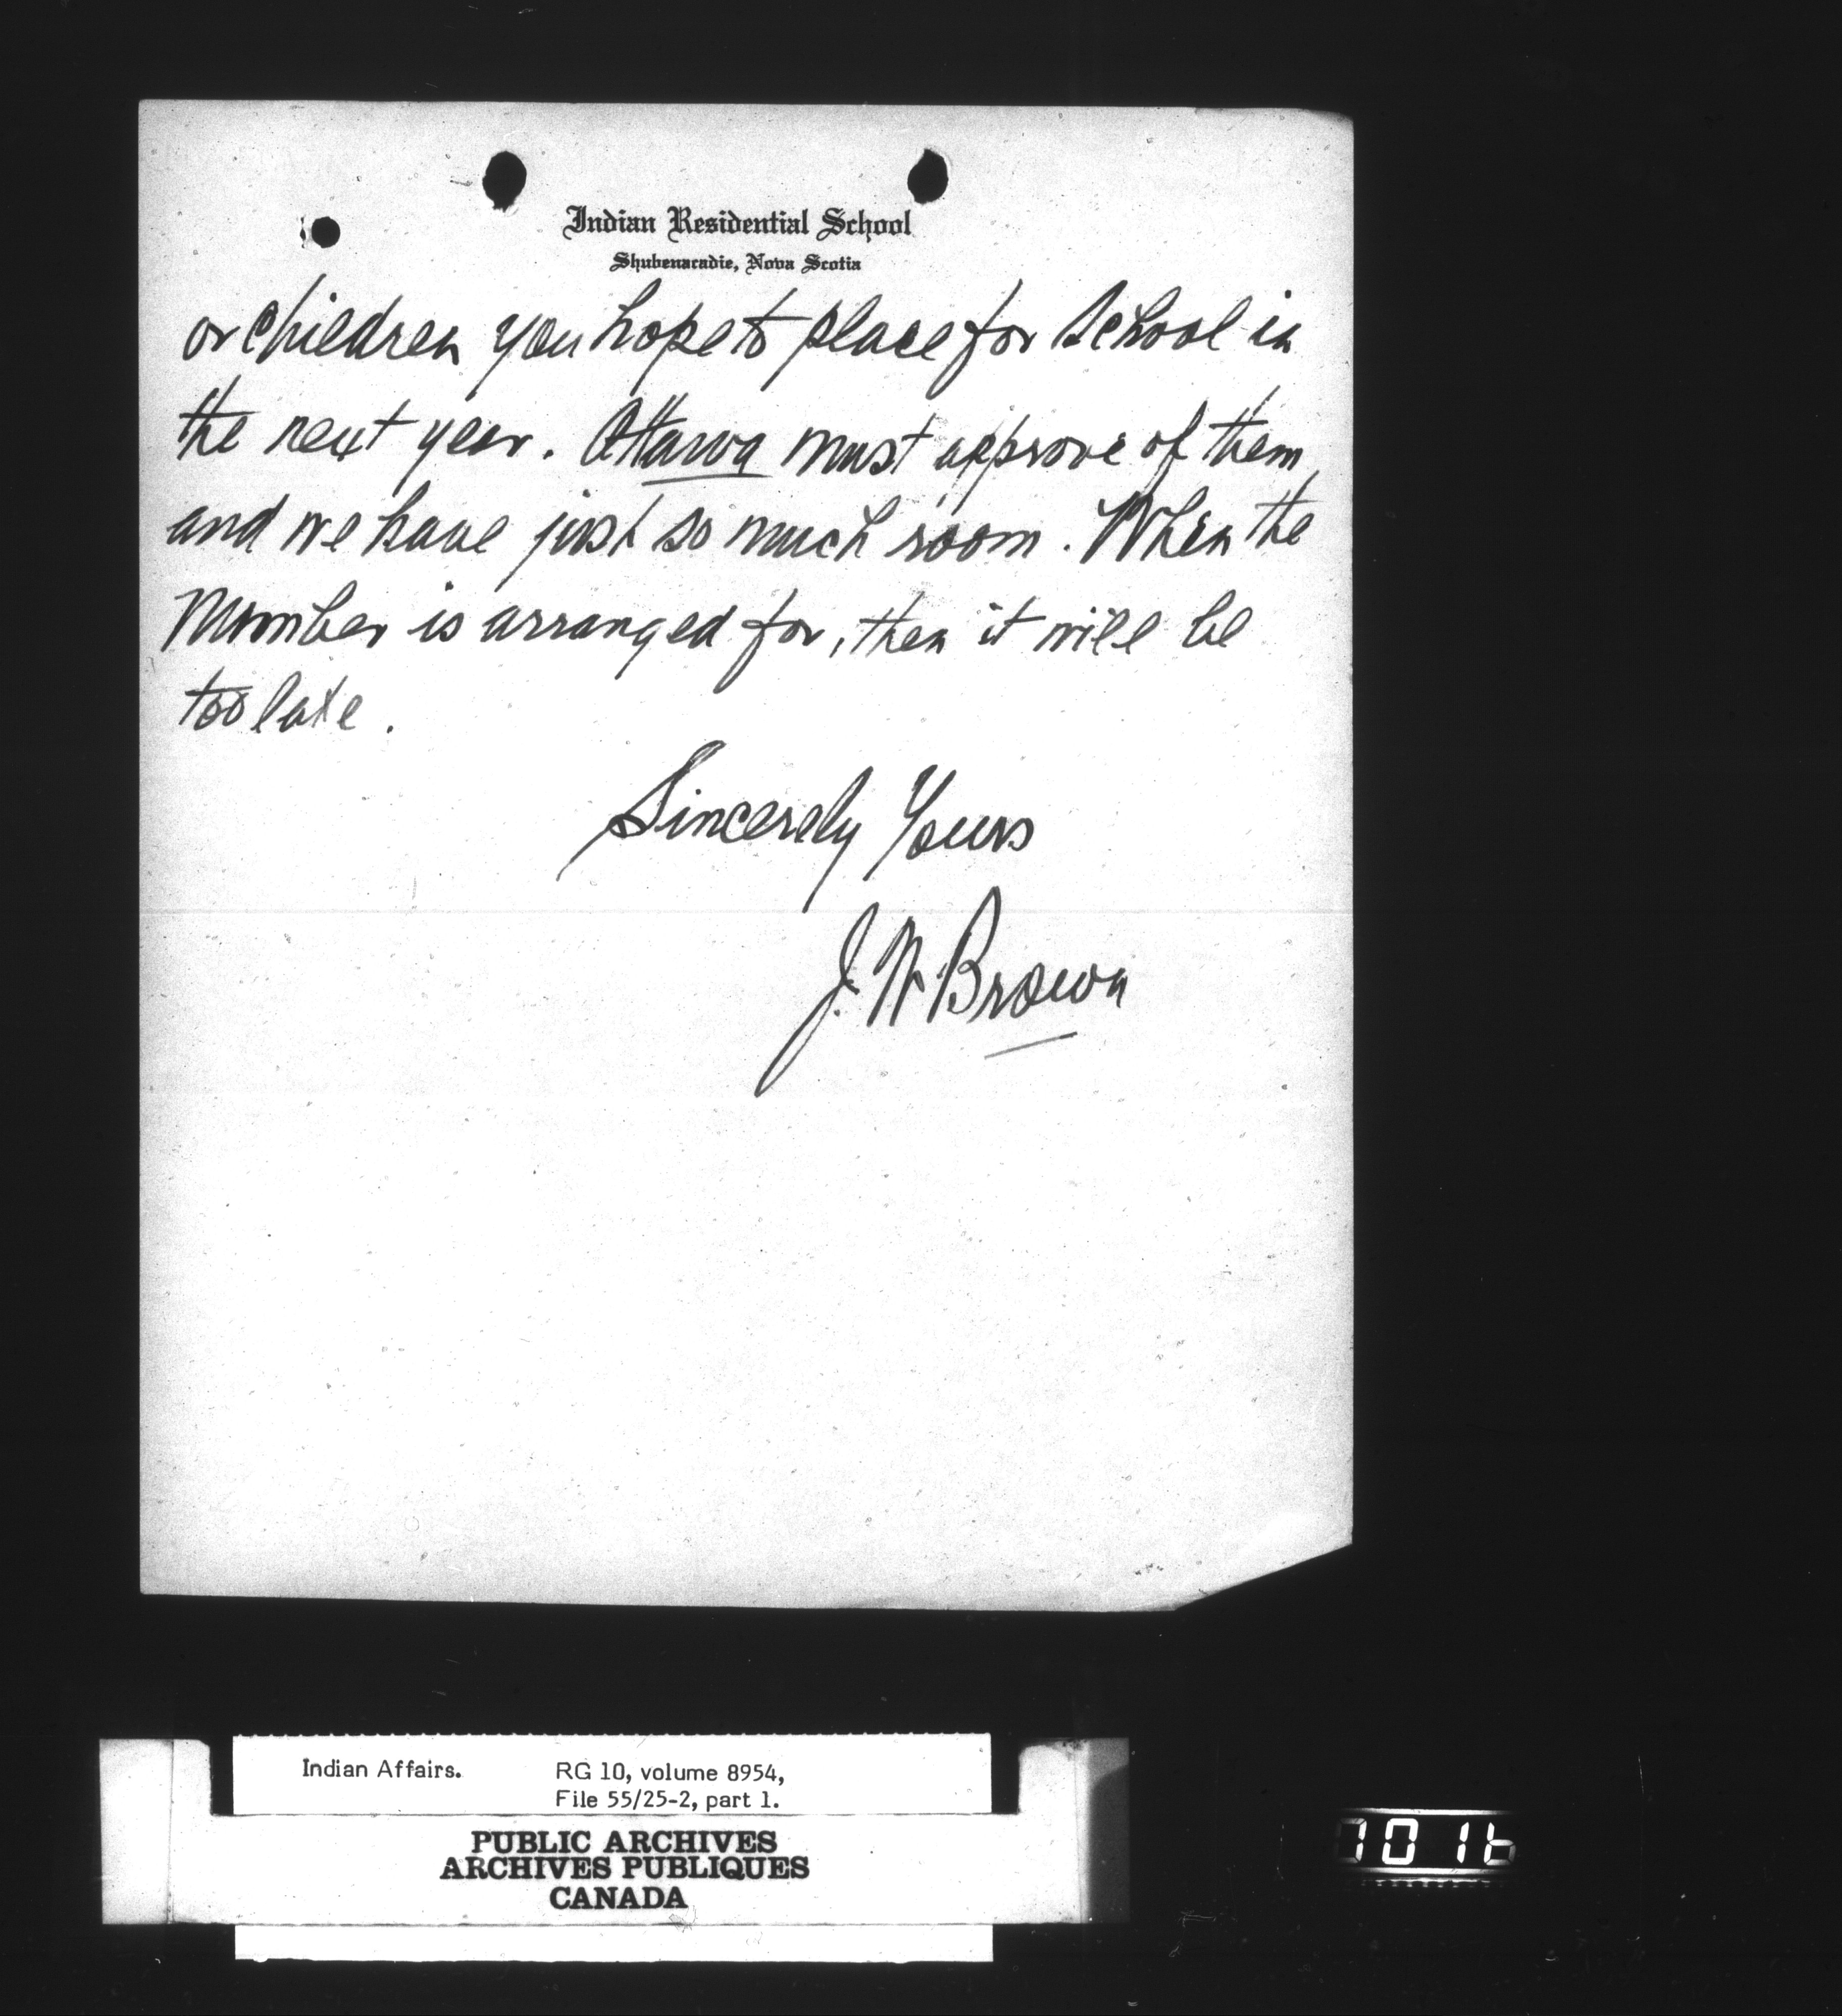 Indian Residential School
Shubenacadie, Nova Scotia
or children you hope to place for School in
the next year. Ottawa must approve of them,
and we have just so much room. When the
Number is arranged for, then it will be
too late.
Sincerely Yours
J. W Brown
Indian Affairs. RG 10, volume 8954,
File 55/25-2, part 1.
PUBLIC ARCHIVES
ARCHIVES PUBLIQUES
CANADA